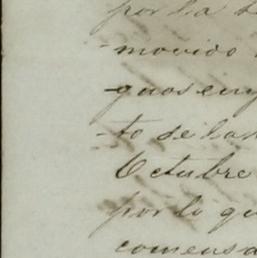 por la
-movido
-to de la
Octubre
por lo qu
comensa